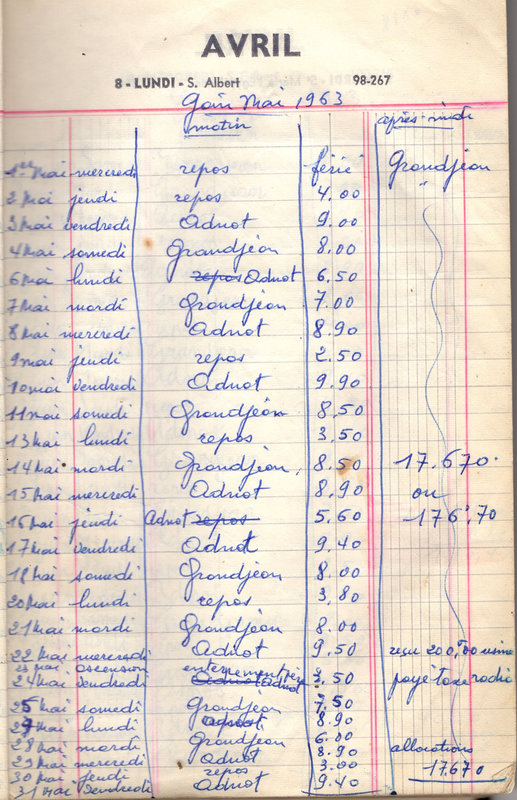 AVRIL
8 - LUNDI - S. Albert 98-267
Gain Mai 1963
matin après-midi
1er Mai mercredi repos férié Grandjéan
2 Mai jeudi repos 4.00 "
3 Mai vendredi Adnot 9.00
4 Mai samedi Grandjéan 8.00
6 Mai lundi repos Adnot 6.50
7 Mai mardi Grandjéan 7.00
8 Mai mercredi Adnot 8.90
9 mai jeudi repos 2.50
10 mai vendredi Adnot 9.90
11 mai samedi Grandjéan 8.50
13 Mai lundi repos 3.50
14 Mai mardi Grandjéan 8.50 17.670.
15 Mai mercredi Adnot 8.90 ou
16 Mai jeudi Adnot repos 5.60 176.70
17 Mai vendredi Adnot 9.40
18 Mai samedi Grandjéan 8.00
20 Mai lundi repos 3.80
21 Mai mardi Grandjéan 8.00
22 Mai mercredi Adnot 9.50 reçu 200,00 usine
23 mai ascension enterrement
24 Mai vendredi Adnot Adnot 3.50 payé taxe radio
25 Mai samedi Grandjéan 7.50
27 Mai lundi Adnot 8.90
28 Mai mardi Grandjéan 6.00
29 Mai mercredi Adnot 8.90 allocations
30 Mai jeudi repos 3.00 17670
31 Mai vendredi Adnot 9.40